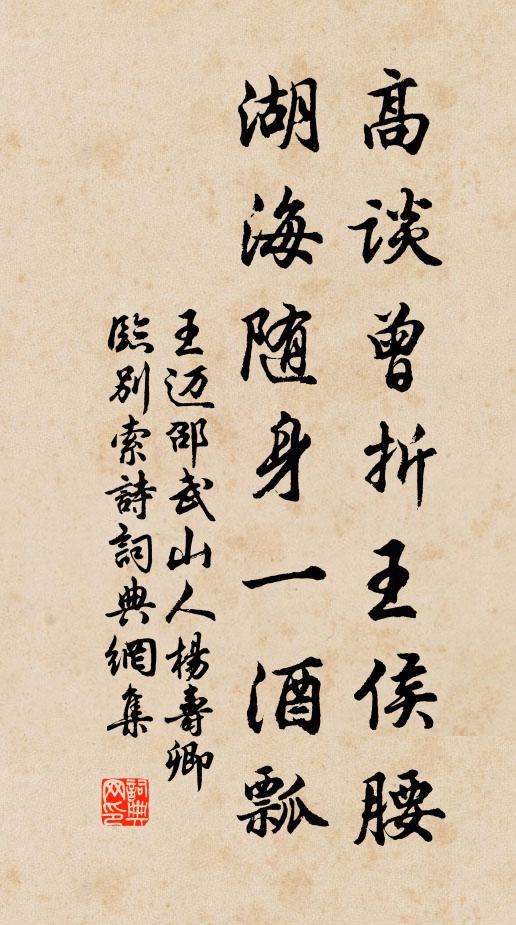 高谈曾折王侯腰
湖海随身一酒瓢
王迈邵武山人楊壽卿
臨别索詩詞典網集
詞典网印